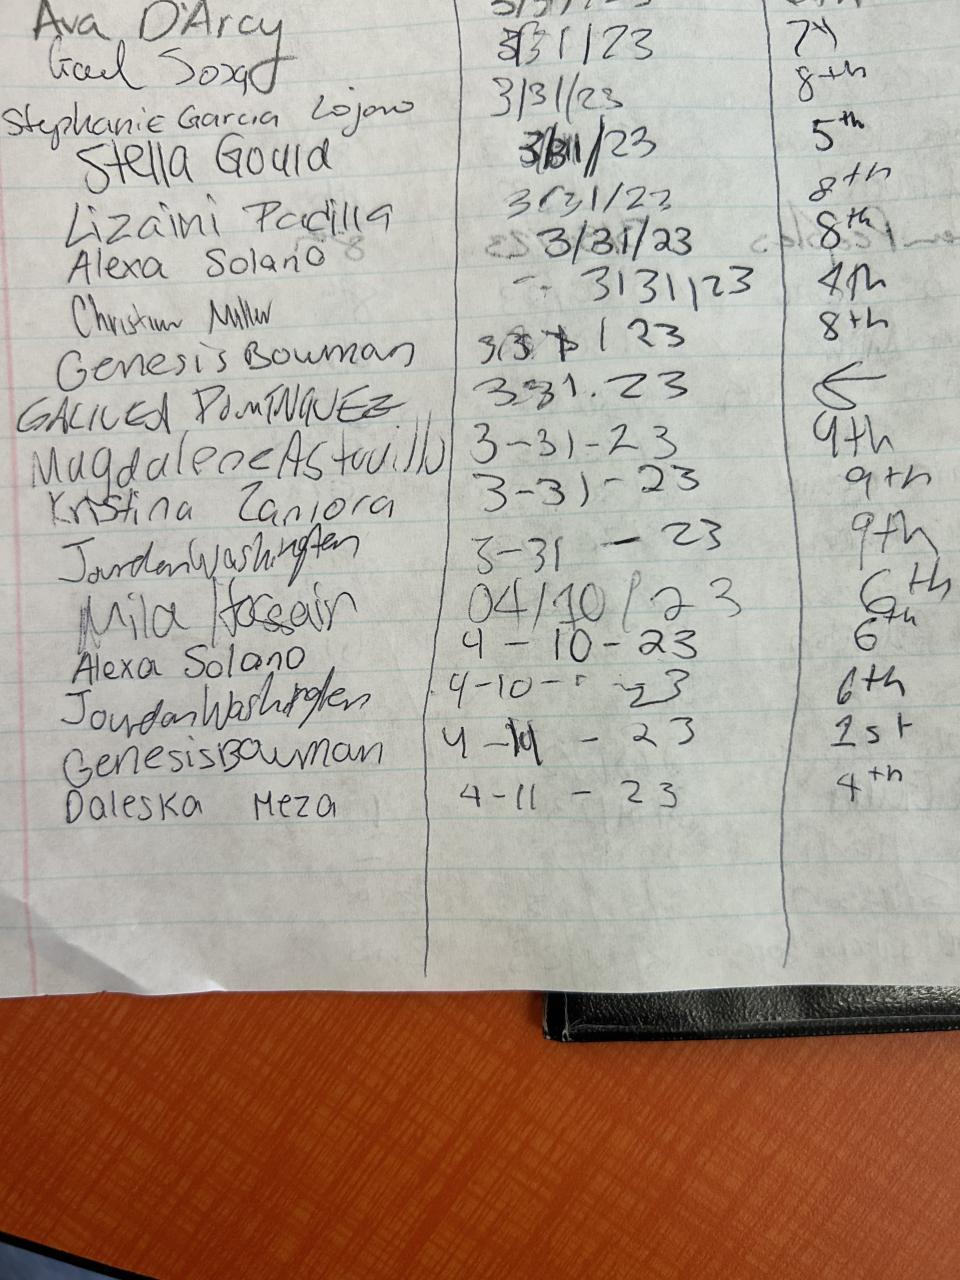 Ava D'Arcy
Gael Sosa 3/31/23 7th
Stephanie Garcia 3/31/23 8th
Stella Gould 3/31/23 5th
Lizaini Padilla 3/31/23 8th
Alexa Solano 3/31/23 8th
Christian Miller 3/31/23 4th
Genesis Bowman 23 8th
GALILEA DOMINQUEZ 331.23
Magdalene 3-31-23 9th
Kristina Zamora 3-31-23 9th
Jourdan Washington 3-31-23 9th
Mila Hossain 04/10/23 6th
Alexa Solano 4-10-23 6th
Jourdan Washington 4-10-23 6th
Genesis Bowman 4-11-23 1st
Daleska Meza 4-11-23 4th